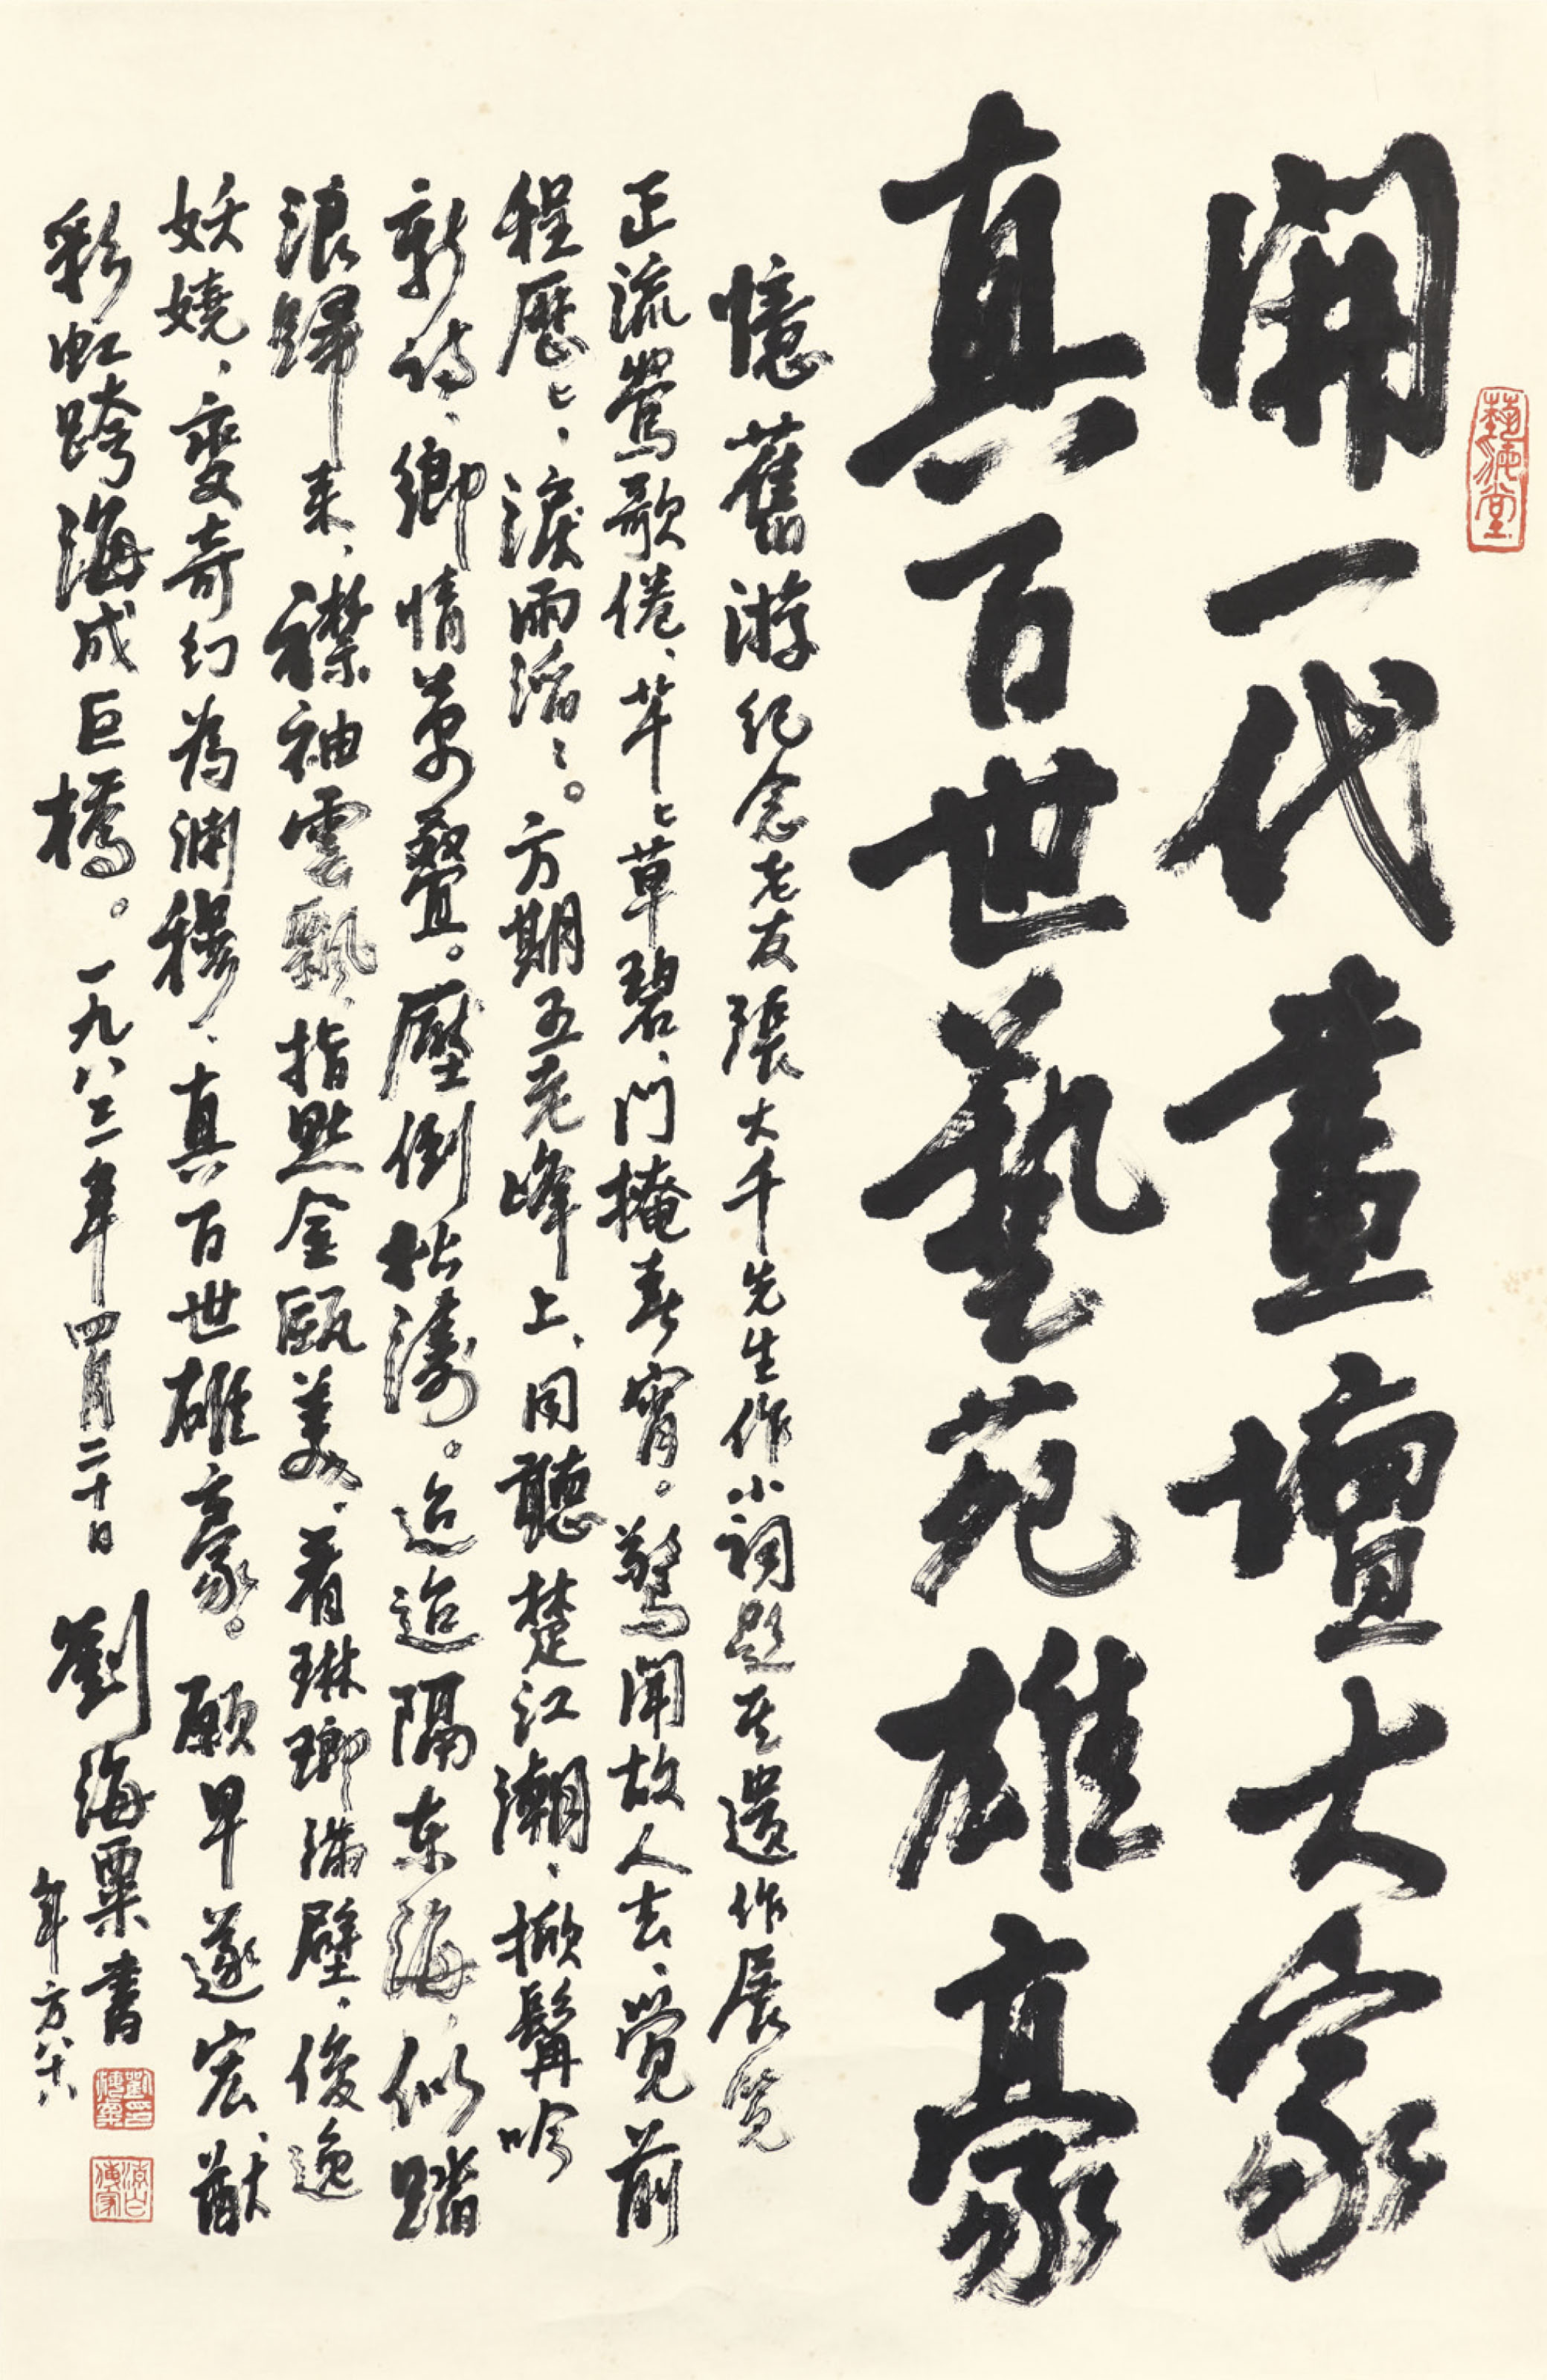 開一代畫壇大家
真百世藝苑雄豪
憶舊游紀念老友張大千先生作小詞題其遺作展覽
正流鶯歌倦、芊〻草碧、門掩春宵。驚聞故人去、覺前
程歷〻、淚雨滔〻。方期五老峰上、同聽楚江潮、掀髯吟
新詩、鄉情萬疊。壓倒松濤。迢迢隔东海、似踏
浪歸来、襟袖雲飄、指點金甌美、看琳瑯滿壁、俊逸
妖嬈、變奇幻為淵穆、真百世雄豪。願早遂宏猷、
彩虹跨海成巨橋。一九八三年四月二十日 劉海粟書
年方八十八
藝海堂
劉海粟印